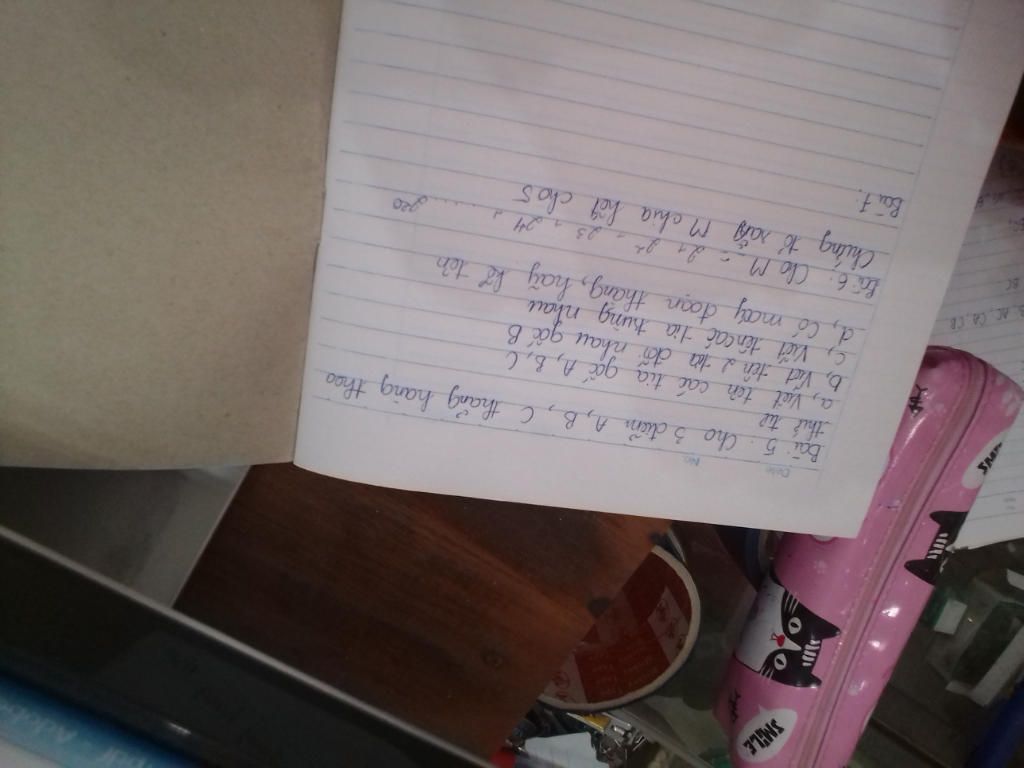 Date No.
Bài 5. Cho 3 điểm A, B, C thẳng hàng theo
thứ tự
a, Viết tên các tia gốc A, B, C
b, Viết tên 2 tia đối nhau gốc B
c, Viết tên các tia trùng nhau
d, Có mấy đoạn thẳng, hãy kể tên
Bài 6. Cho M = 2 + 2² + 2³ + 2⁴ + ....... 2²⁰
Chứng tỏ rằng M chia hết cho 5
Bài 7.
B, AC, CA, CB
BC
SMILE
SMILE